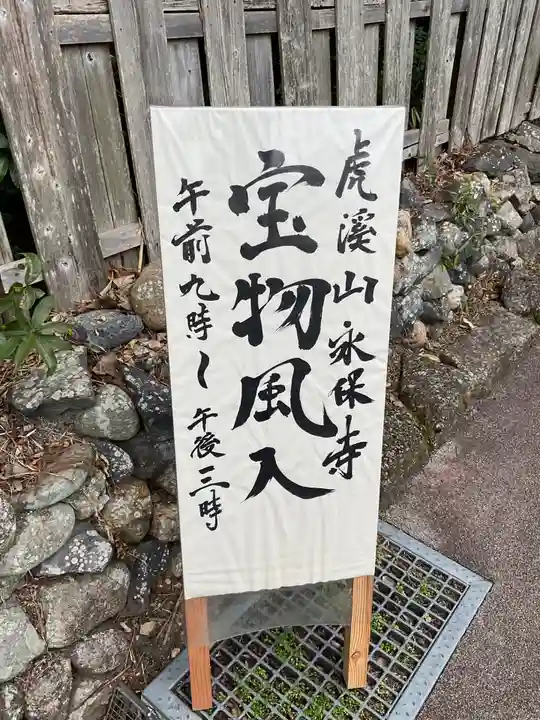 虎溪山永保寺
宝物風入
午前九時～午後三時